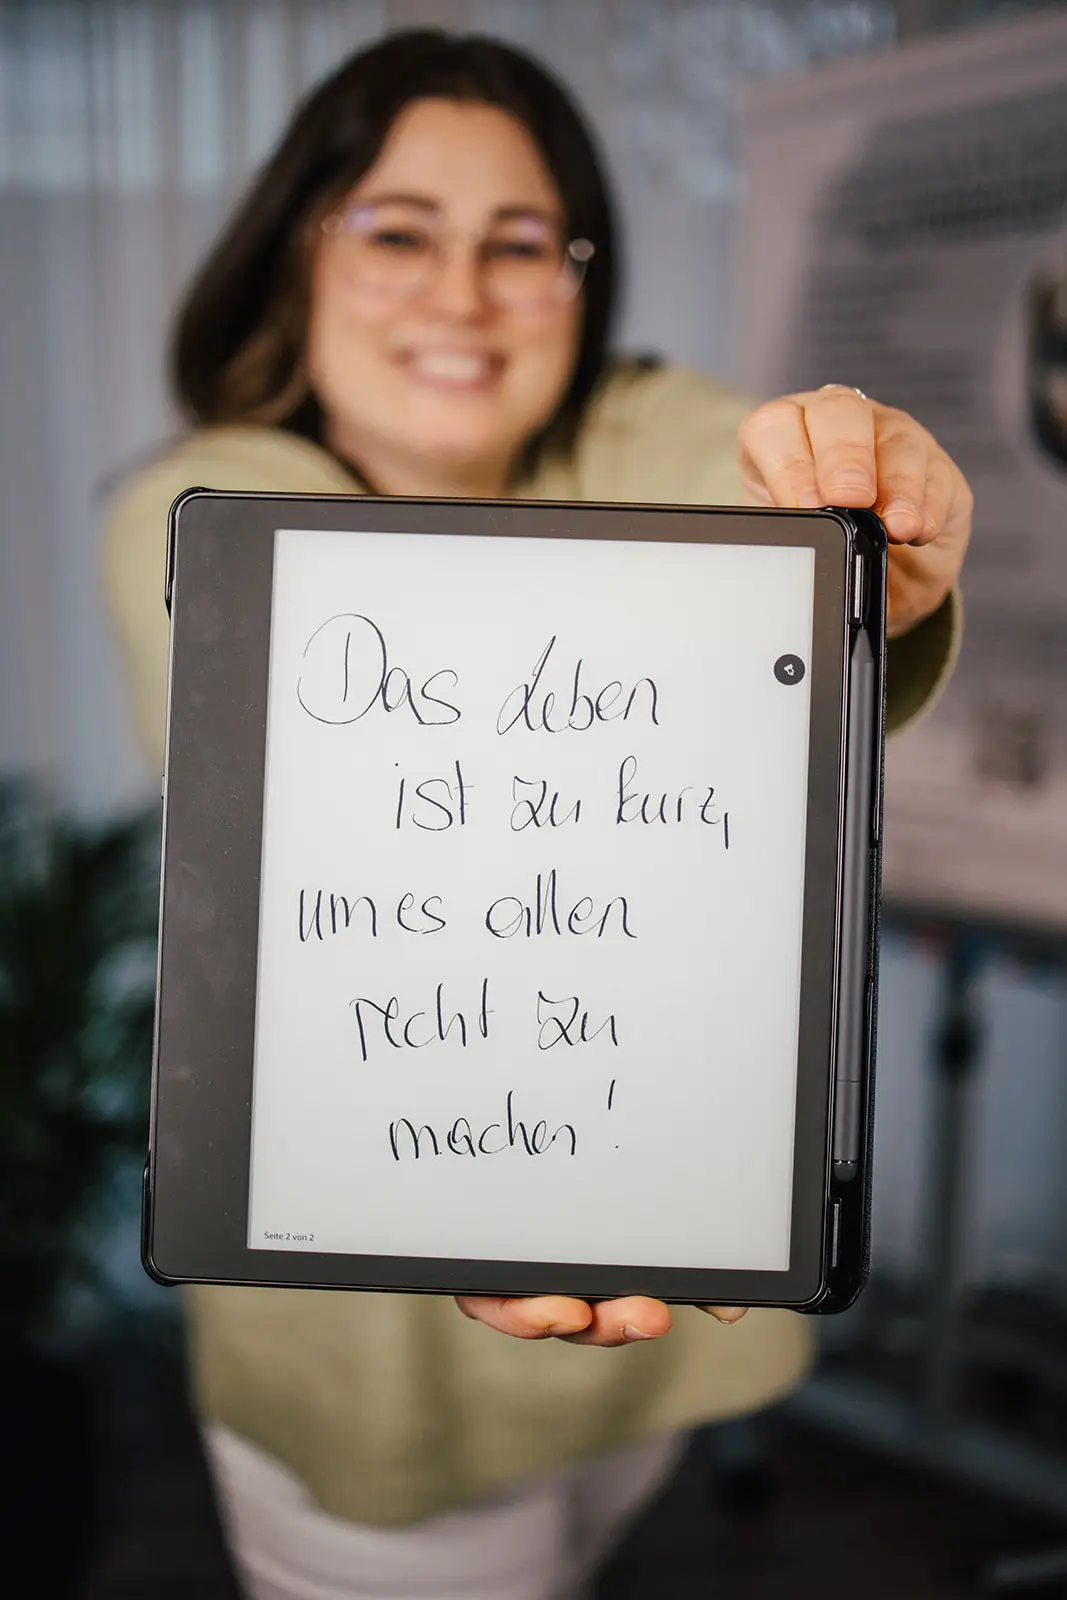 Das Leben
ist zu kurz,
um es allen
recht zu
machen!
Seite 2 von 2